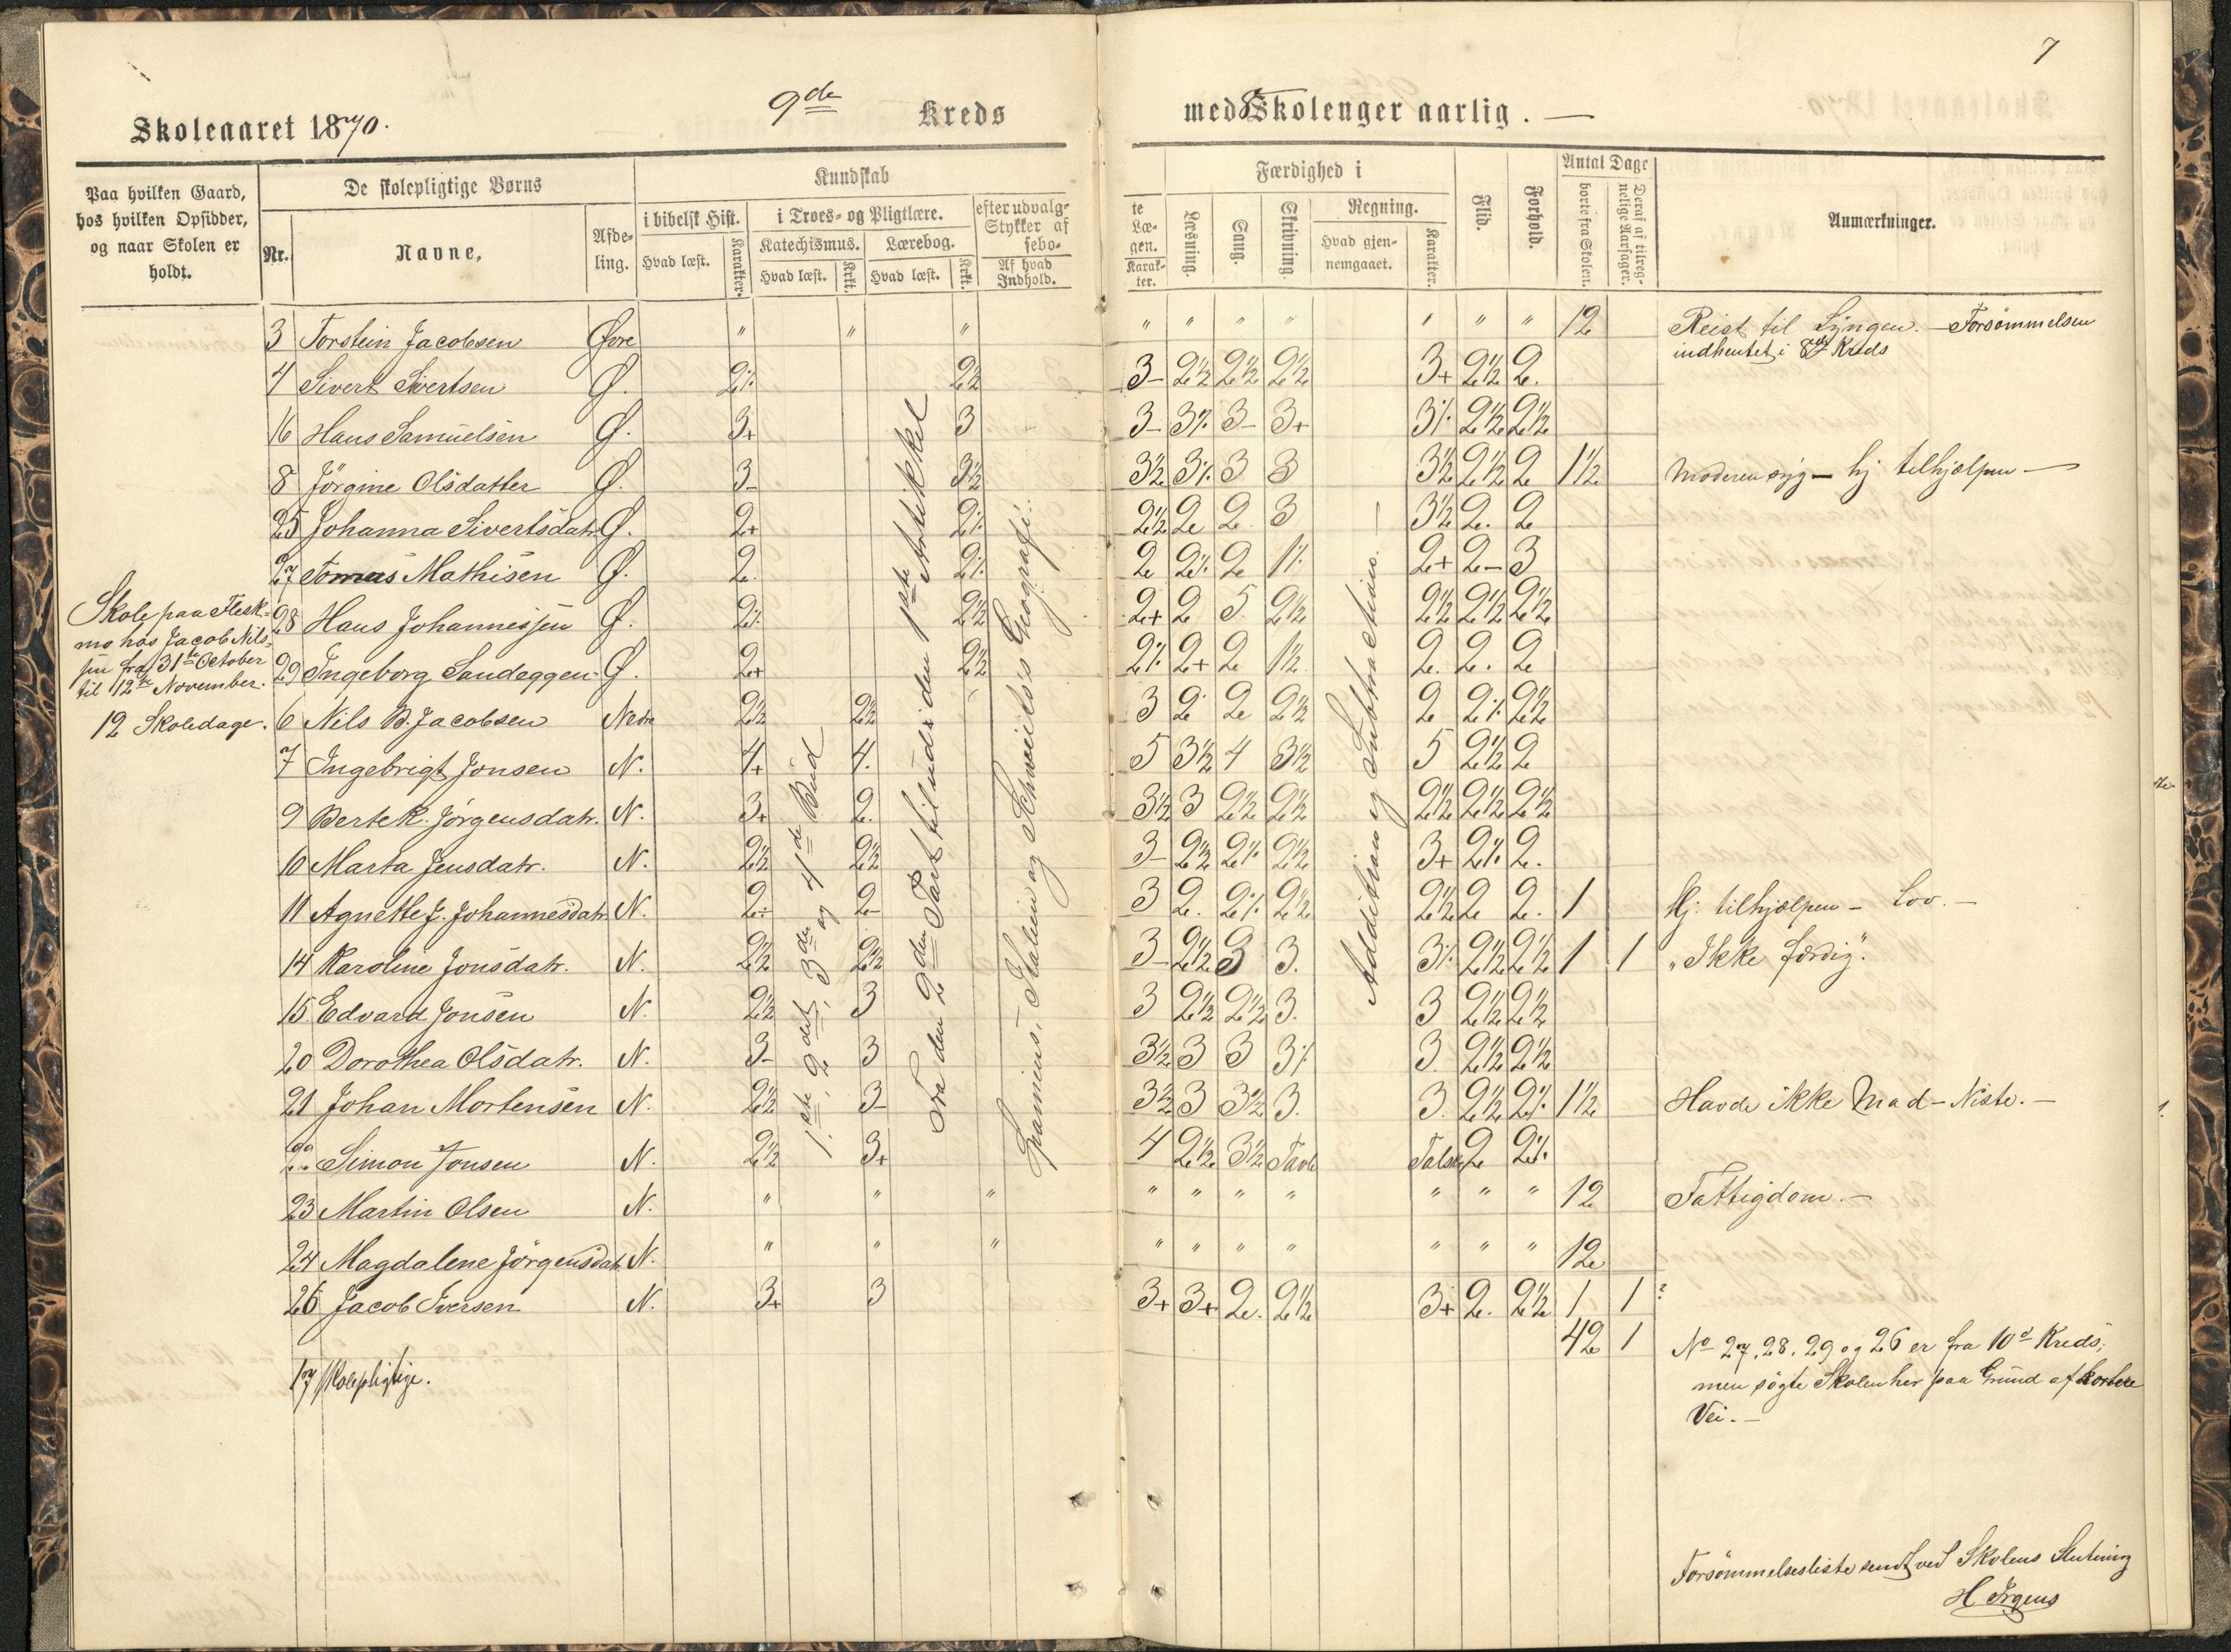 7
Skoleaaret 1870.
9de Kreds
med Skolenger aarlig. —
Paa hvilken Gaard,
hos hvilken Opsidder,
og naar Skolen er
holdt.
De skolepligtige Børns
Nr.
Navne.
Afde-
ling.
Kundskab
i bibelsk Hist.
Hvad læst.
Karakter.
i Troes- og Pligtlære.
Katechismus.
Hvad læst.
Krkt.
Lærebog.
Hvad læst.
Krkt.
efter udvalg-
Stykker af
sebo-
Af hvad
Indhold.
te
Læ-
gen.
Karak-
ter.
Færdighed i
Læsning.
Sang.
Skrivning.
Regning.
Hvad gjen-
nemgaaet.
Karakter.
Flid.
Forhold.
Antal Dage
borte fra Skolen.
Deraf af tilreg-
nelige Aarsager.
Anmærkninger.
3 Torstein Jacobsen Øvre " " " " " " " " " " 12 Reist til Lyngen. — Forsömmelsen
indhentet i 8de Kreds
4 Sivert Sivertsen Ø. 2% 2½ 3- 2½ 2½ 2½ 3+ 2½ 2.
16 Hans Samuelsen Ø. 3+ 3 3- 3% 3- 3+ 3% 2½ 2½
8 Jörgine Olsdatter Ø. 3- 3½ 3½ 3% 3 3 3½ 2½ 2 1½ Moderen syg — hj tilhjælpen —
25 Johanna Sivertsdatr Ø. 2+ 2% 2½ 2 2 3 3½ 2. 2
27 Tomas Mathisen Ø. 2. 2% 2 2% 2 1% 2+ 2- 3
28 Hans Johannesjen Ø. 2% 2½ 2+ 2 5 2½ 2½ 2½ 2½
29 Ingeborg Sandeggen Ø. 2+ 2½ 2% 2+ 2 1½ 2. 2. 2
6 Nils B. Jacobsen Nedre 2½ 2½ 3 2 2 2½ 2 2% 2½
7 Ingebrigt Jonsen N. 4+ 4. 5 3½ 4 3½ 5 2½ 2
9 Berte K. Jörgensdatr. N. 3+ 2. 3½ 3 2½ 2½ 2½ 2½ 2½
10 Marta Jensdatr. N. 2½ 2½ 3- 2½ 2% 2½ 3+ 2% 2.
11 Agnette J. Johannesdatr. N. 2- 2- 3 2. 2% 2½ 2½ 2 2. 1 Hj. tilhjælpen — Lov. —
14 Karoline Jonsdatr. N. 2½ 2½ 3- 2½ 3 3. 3% 2½ 2½ 1 1 „Ikke færdig".
15 Edvard Jonsen N. 2½ 3 3 2½ 2½ 3. 3 2½ 2½
20 Dorothea Olsdatr. N. 3- 3 3½ 3 3 3% 3. 2½ 2½
21 Johan Mortensen N. 2½ 3- 3½ 3 3½ 3. 3. 2½ 2% 1½ Havde ikke Mad-Niste. —
22 Simon Jonsen N. 2½ 3+ 4 2½ 3½ Tavle 2 2%
23 Martin Olsen N. " " " " " " " " " " 12 Fattigdom. —
24 Magdalene Jörgensdatr. N. " " " " " " " " " " 12
26 Jacob Iversen N. 3+ 3 3+ 3+ 2. 2½ 3+ 2. 2½ 1 1 ?
42 1
17 skolepligtige.
Skole paa Flesk-
mo hos Jacob Nils-
sen fra 31te October
til 12te November.
12 Skoledage.
1ste, 2det, 3die og 4de Bud
Fra den 2den Part til ud i den 1ste Artikkel
Spaniens, Italien og Schweits's Geografi.
Addition og Subtraction. —
No 27, 28. 29 og 26 er fra 10d Kreds,
men søgte Skolen her paa Grund af kortere
Vei. —
Forsömmelsesliste sendt ved Skolens Slutning
H Irgens